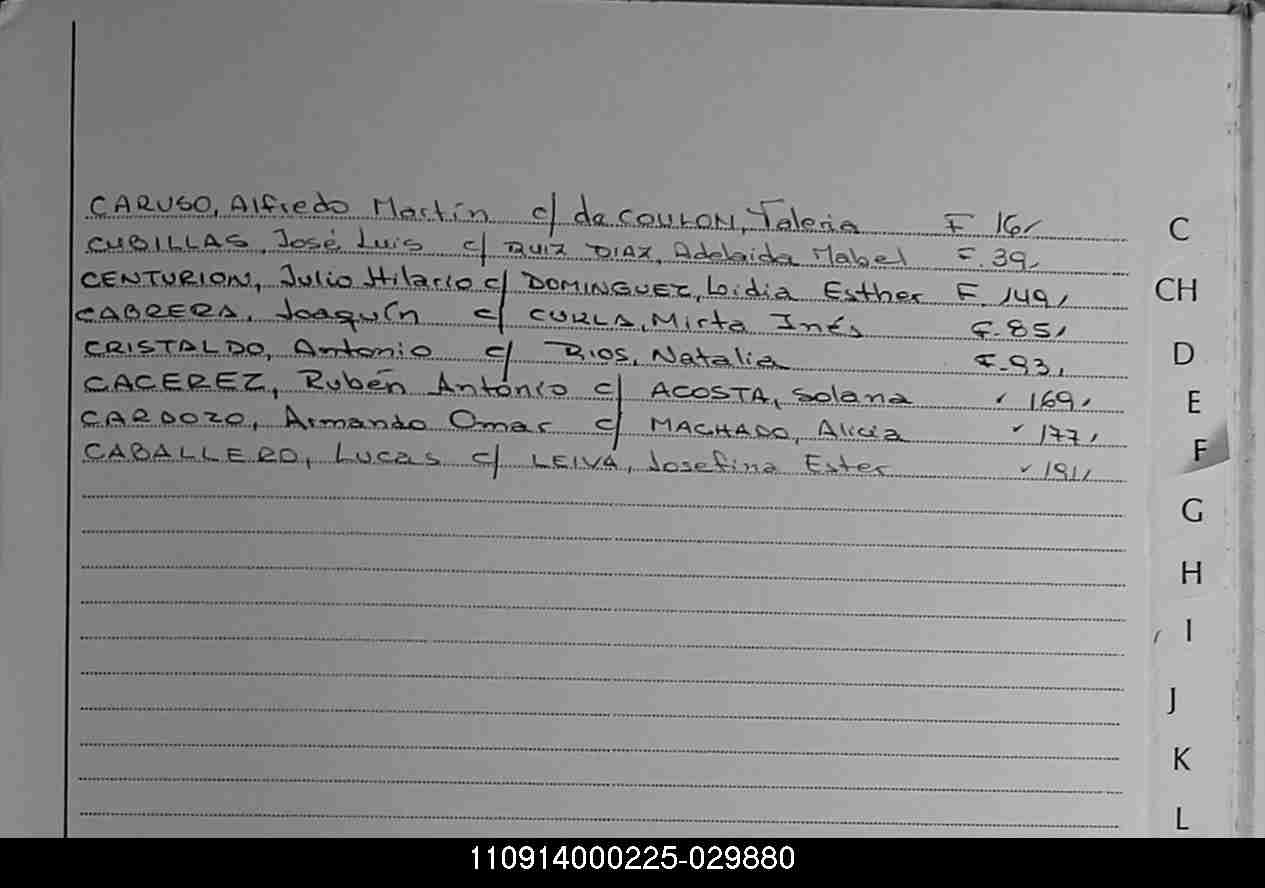 CARUSO, Alfredo Martín c/ de COULON, Valeria F 16,
CUBILLAS, José Luis c/ RUIZ DIAZ, Adelaida Mabel F. 39,
CENTURION, Julio Hilario c/ DOMINGUEZ, Lidia Esther F. 149,
CABRERA, Joaquín c/ Mirta Inés F. 85,
CRISTALDO, Antonio c/ RIOS, Natalia F. 93,
CACEREZ, Rubén Antonio c/ ACOSTA, Solana ′ 169,
CARDOZO, Armando Omar c/ MACHADO, Alicia ′ 177,
CABALLERO, Lucas c/ LEIVA, Josefina Ester ′ 191,
C
CH
D
E
F
G
H
I
J
K
L
110914000225-029880